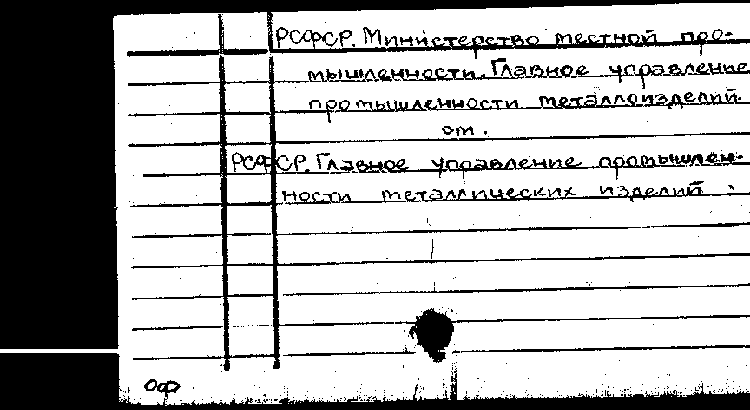 РСФСР. Министерство местной про-
мышленности. Главное управление
промышленности металлоизделий
см.
РСФСР. Главное управление промышлен-
ности металлических изделий.
Оф